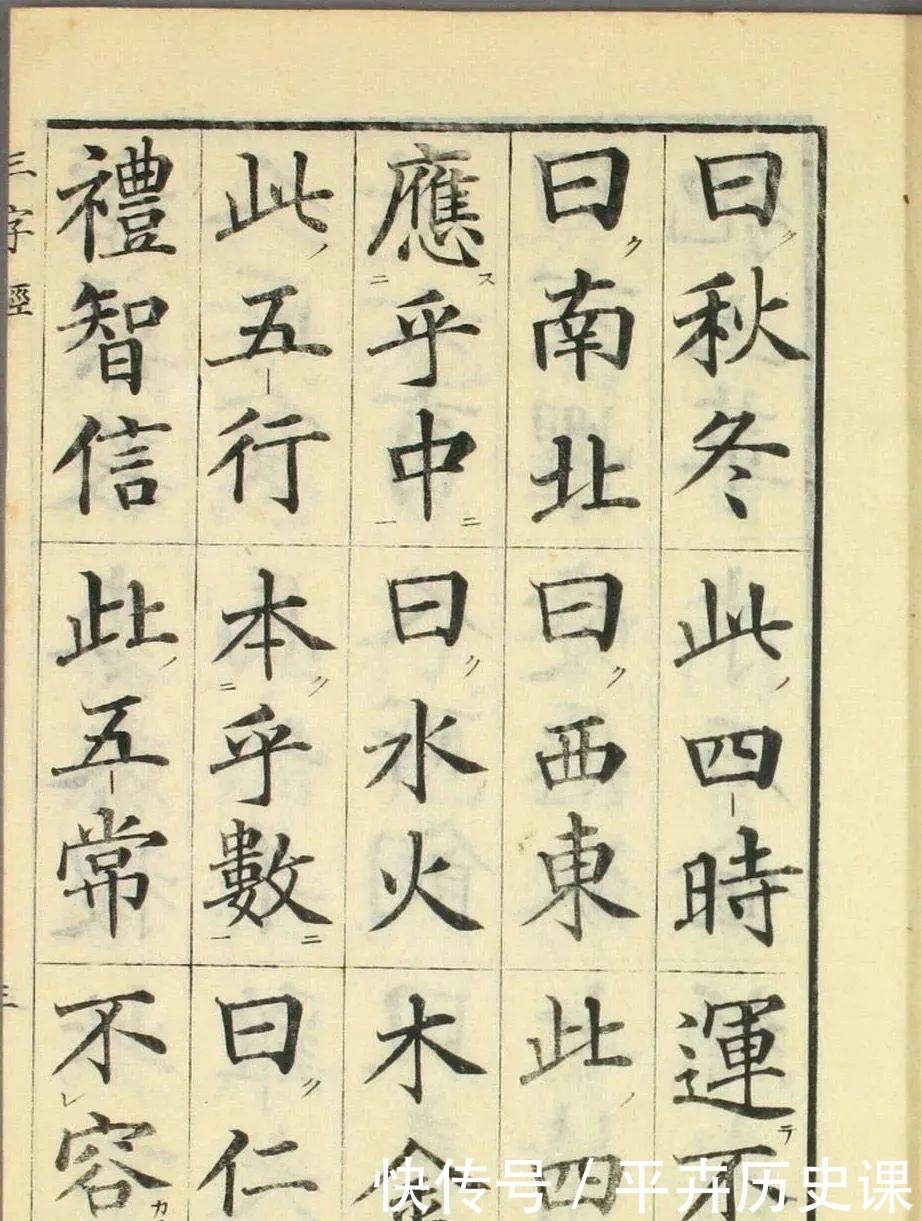 曰秋冬此四時運不
曰南北曰西東此四
應乎中曰水火木金
此五行本乎數曰仁
禮智信此五常不容
三字經 三
快传号 / 平卉历史课